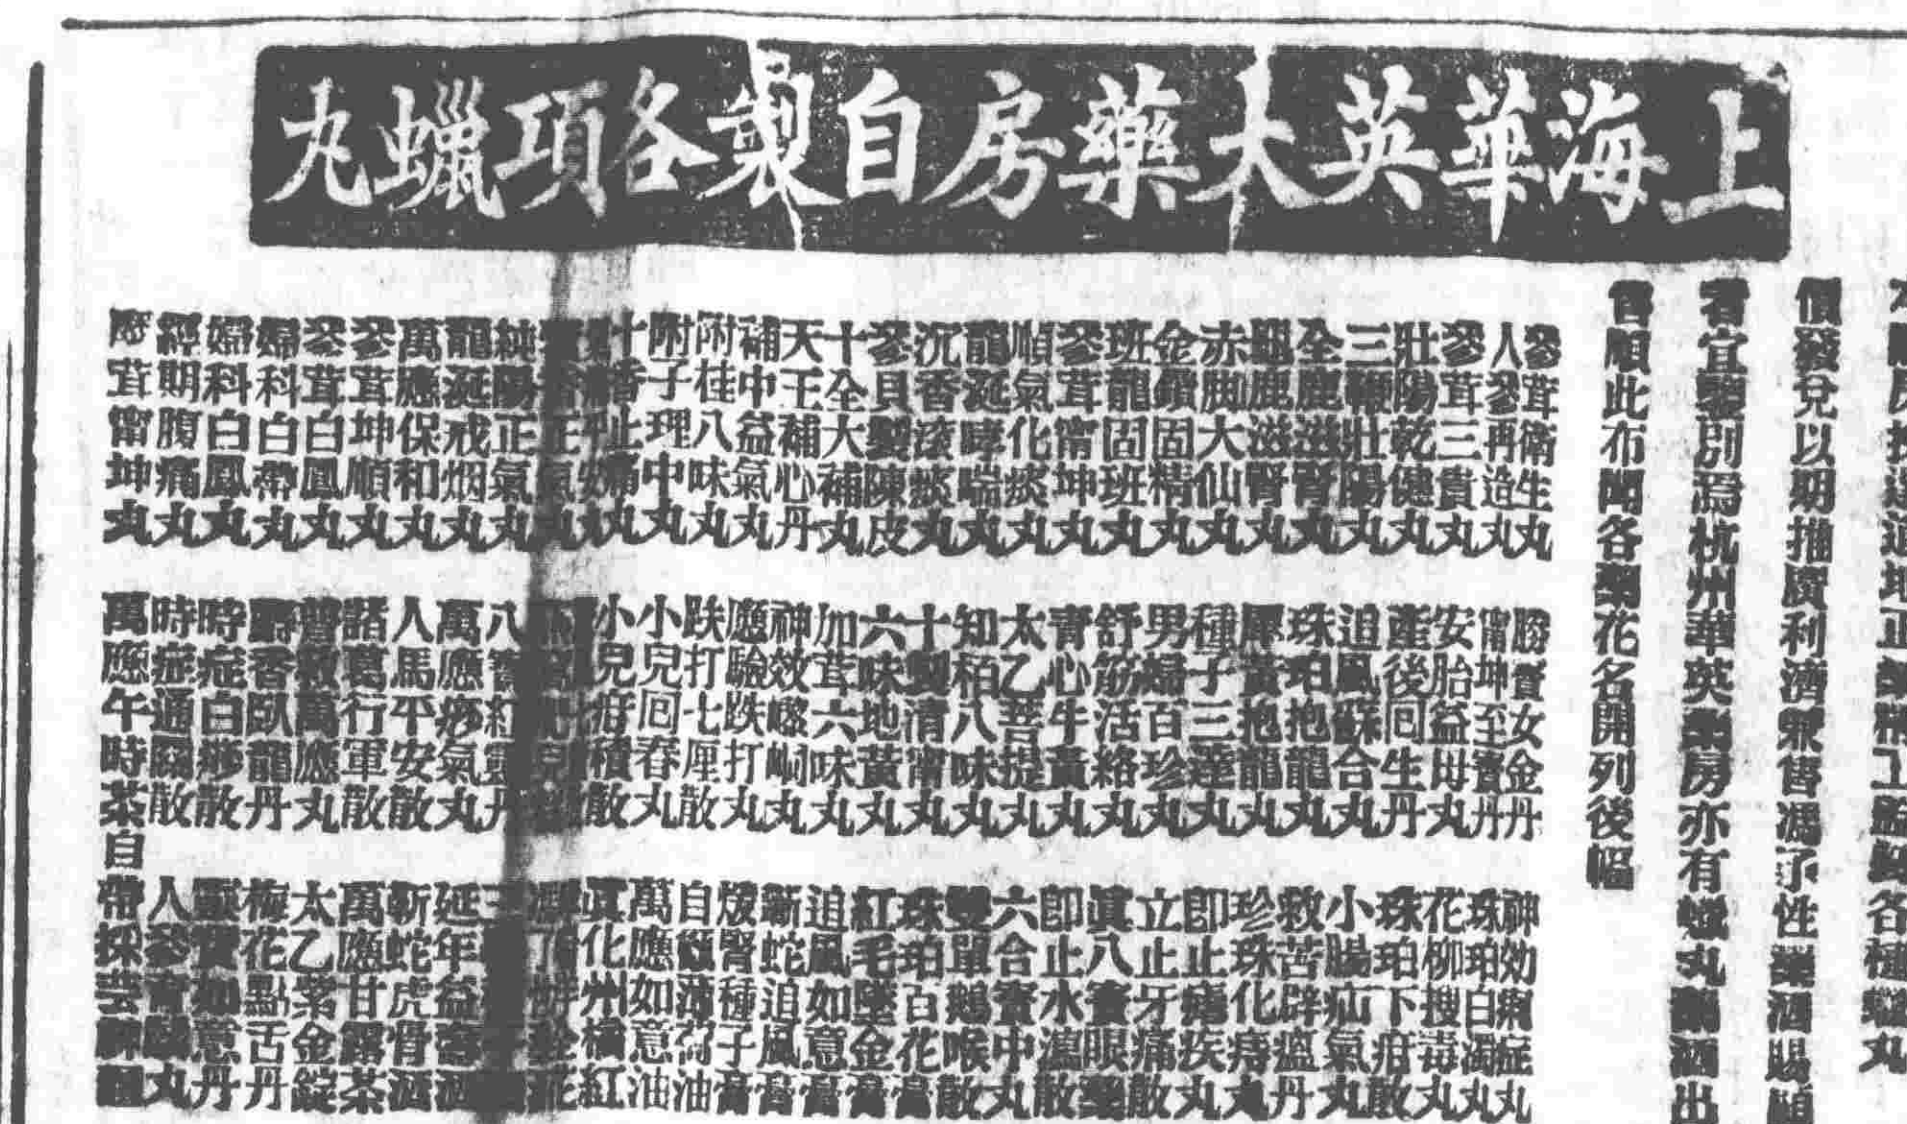 上海華英大藥房自製各項蠟丸
價發兌以期推廣利濟兼售馮了性藥酒賜顧
者宜鑒別焉杭州華英藥房亦有蠟丸藥酒出
售順此布聞各藥花名開列後幅
參茸衛生丸
人參再造丸
參茸三貴丸
壯陽乾健丸
三鞭壯陽丸
全鹿滋腎丸
龜鹿滋腎丸
赤脚大仙丸
金鎖固精丸
班龍固班丸
參茸甯坤丸
順氣化痰丸
龍涎哮喘丸
沉香滾痰丸
參貝製陳皮
十全大補丸
天王補心丹
補中益氣丸
附桂八味丸
附子理中丸
十香止痛丸
正氣丸
純陽正氣丸
龍涎戒烟丸
萬應保和丸
參茸坤順丸
參茸白鳳丸
婦科白帶丸
婦科白鳳丸
經期腹痛丸
茸甯坤丸
勝寶女金丹
甯坤至寶丹
安胎益母丸
產後回生丹
追風蘇合丸
珠珀抱龍丸
犀黃抱龍丸
種子三達丸
男婦百珍丸
舒筋活絡丸
青心牛黃丸
太乙菩提丸
知柏八味丸
十製清甯丸
六味地黃丸
加茸六味丸
神效嚱㗋丸
應驗跌打丸
跌打七厘散
小兒回春丸
小兒疳積散
八寶紅靈丹
萬應痧氣丸
人馬平安散
諸葛行軍散
普救萬應丸
麝香臥龍丹
時症白痧散
時症通關散
萬應午時茶
神効痢症丸
珠珀白濁丸
花柳搜毒丸
珠珀下疳散
小腸疝氣丸
救苦辟瘟丹
珍珠化痔丸
即止瘧疾丸
立止牙痛散
眞八寶眼藥
即止水瀉散
六合寶中丸
雙單鵝喉散
珠珀百花膏
紅毛墜金膏
追風如意膏
蘄蛇追風膏
煖腎種子膏
自製薄荷油
萬應如意油
眞化州橘紅
延年益壽酒
蘄蛇虎骨酒
萬應甘露茶
太乙紫金錠
梅花點舌丹
靈寶如意丹
人參育麟丸
自帶採芸